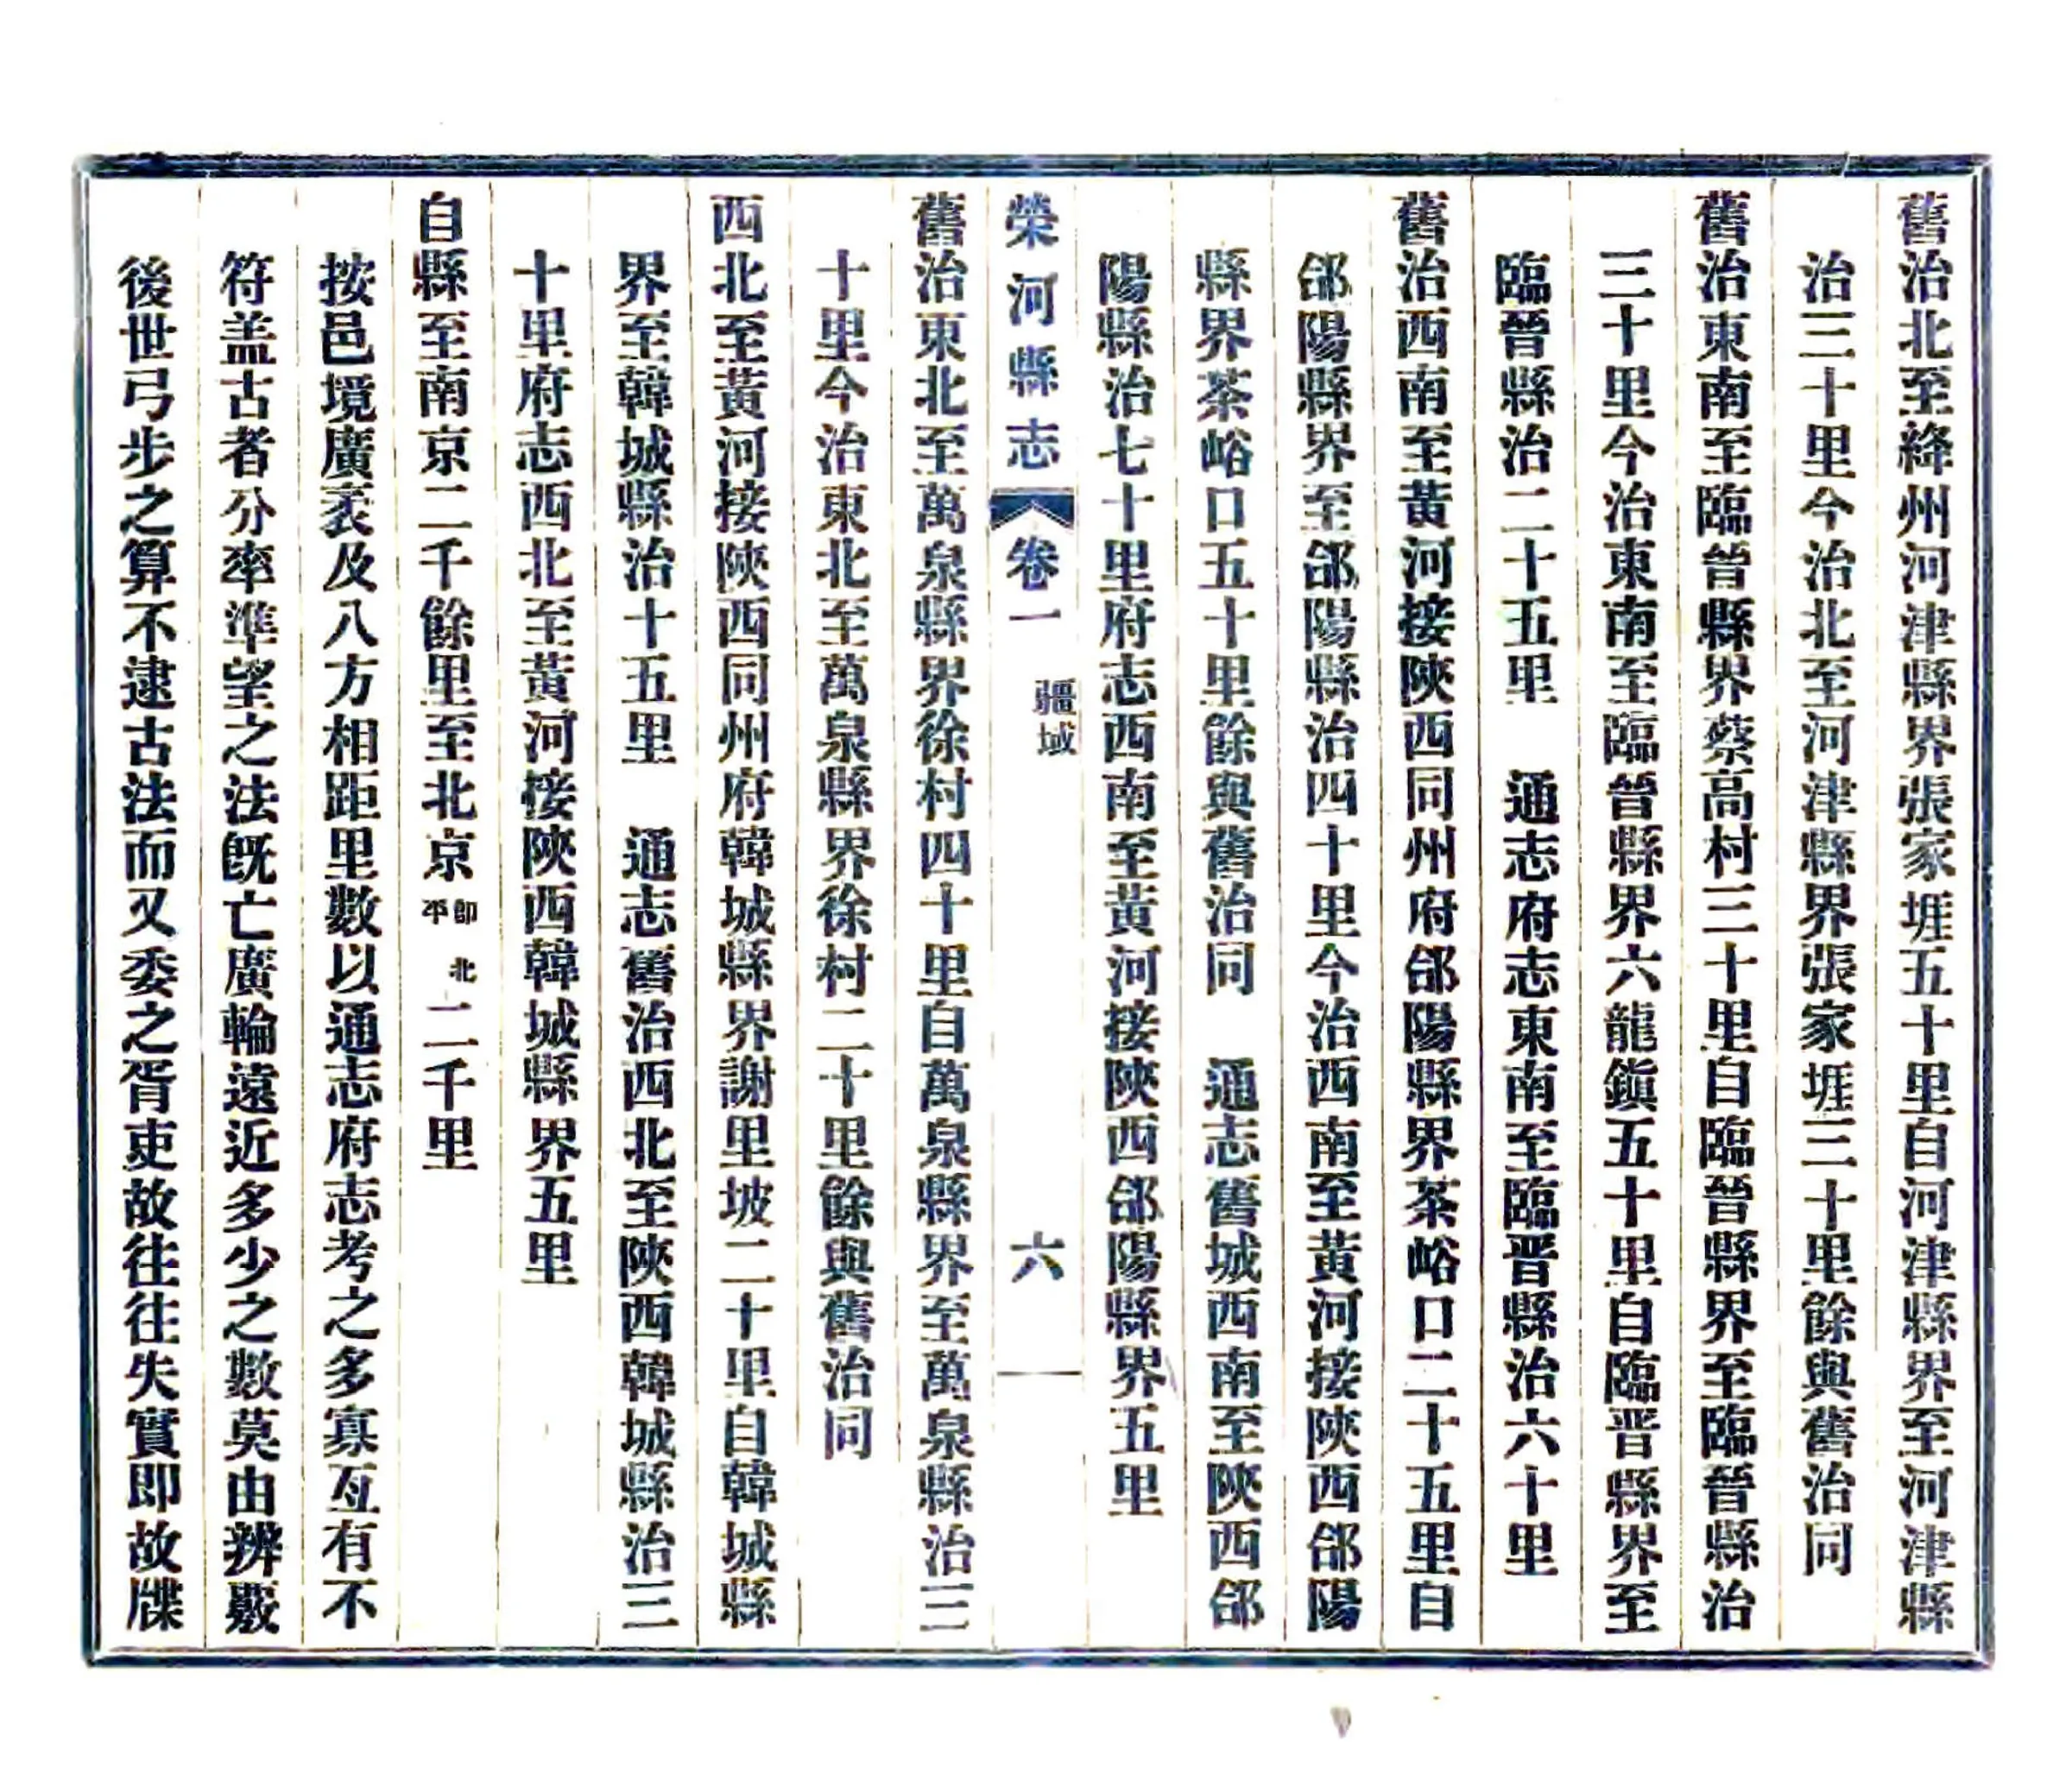 舊治北至絳州河津縣界張家堐五十里自河津縣界至河津縣
治三十里今治北至河津縣界張家堐三十里餘與舊治同
舊治東南至臨晉縣界蔡高村三十里自臨晉縣界至臨晉縣治
三十里今治東南至臨晉縣界六龍鎭五十里自臨晋縣界至
臨晉縣治二十五里　通志府志東南至臨晋縣治六十里
舊治西南至黃河接陝西同州府郃陽縣界茶峪口二十五里自
郃陽縣界至郃陽縣治四十里今治西南至黃河接陝西郃陽
縣界茶峪口五十里餘與舊治同　通志舊城西南至陝西郃
陽縣治七十里府志西南至黃河接陝西郃陽縣界五里
榮河縣志　卷一　疆域　六
舊治東北至萬泉縣界徐村四十里自萬泉縣界至萬泉縣治三
十里今治東北至萬泉縣界徐村二十里餘與舊治同
西北至黃河接陝西同州府韓城縣界謝里坡二十里自韓城縣
界至韓城縣治十五里　通志舊治西北至陝西韓城縣治三
十里府志西北至黃河接陝西韓城縣界五里
自縣至南京二千餘里至北京即北平二千里
按邑境廣袤及八方相距里數以通志府志考之多寡互有不
符盖古者分率準望之法旣亡廣輪遠近多少之數莫由辨覈
後世弓步之算不逮古法而又委之胥吏故往往失實即故牒